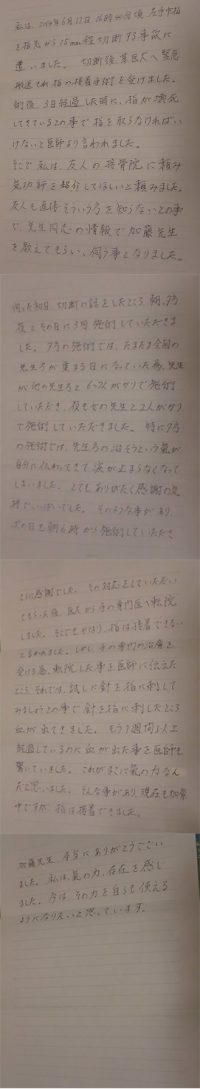 私は、2014年6月12日 16時40分頃 左手中指
を指先から15mm程切断する事故に
遭いました。 切断後 某医大へ緊急
搬送され指の接着手術を受けました。
術後、3日経過した時に、指が壊死
してきているとの事で指を取らなければい
けないと医師より言われました。
そこで私は、友人の接骨院に頼み
気功師を紹介してほしいと頼みました。
友人も直接そういう方を知らないとの事
で、先生同志の情報で加藤先生
を教えてもらい、伺う事となりました。
伺った初日、切断の話をしたところ 朝、夕方
夜とその日に3回施術していただきま
した。夕方の施術では、たまたま全国の
先生方が集まる日になっていた為、先生
が他の先生方と 6〜7人がかりで施術
していただき、夜も女の先生と2人がかり
で施術していただきました。 特に夕方
の施術では、先生方の治そうという気が
自分に伝わってきて涙が止まらなくなって
しまいました。 とてもありがたく感謝の気
持でいっぱいでした。 そのような事があり、
次の日も朝6時から施術していただき
さに感謝でした。 その対応をしていただい
てもらった後、医大から手の専門医へ転院
しました。そこでもやはり、指は接着できない
と言われました。しかし、手の専門の治療を
受ける為、転院した事を医師に伝えた
ところ それでは、試しに針を指に刺して
みましょうとの事で 針を指に刺したところ
血が出てきました。 もう1週間以上
経過しているのに血が出た事を医師も
驚いていました。 これがまさに気の力なん
だと思いました。 そんな事があり、現在も加療
中ですが、指は接着できました。
加藤先生、本当にありがとうござい
ました。私は、気の力、存在を感じ
ました。今は、その力を自らも使える
ようになりたいと思っています。